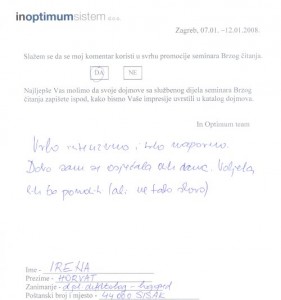 inoptimumsistem d.o.o.
Zagreb, 07.01. –12.01.2008.
Slažem se da se moj komentar koristi u svrhu promocije seminara Brzog čitanja.
DA NE
Najljepše Vas molimo da svoje dojmove sa službenog dijela seminara Brzog
čitanja zapišete ispod, kako bismo Vaše impresije uvrstili u katalog dojmova.
In Optimum team
Vrlo intenzivno i vrlo naporno.
Dobro sam se osjećala uz vas. Voljela
bih to ponoviti (ali ne tako skoro)
Ime - IRENA
Prezime - HORVAT
Zanimanje - dipl.
Poštanski broj i mjesto - 44000 SISAK